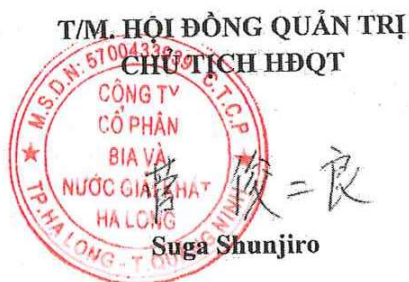 T/M. HỘI ĐỒNG QUẢN TRỊ
CHỦ TỊCH HĐQT
M.S.D.N: 5700433939 C.T.C.P
CÔNG TY
CỔ PHẦN
BIA VÀ
NƯỚC GIẢI KHÁT
HẠ LONG
TP. HẠ LONG - T. QUẢNG NINH
菅 俊二良
Suga Shunjiro